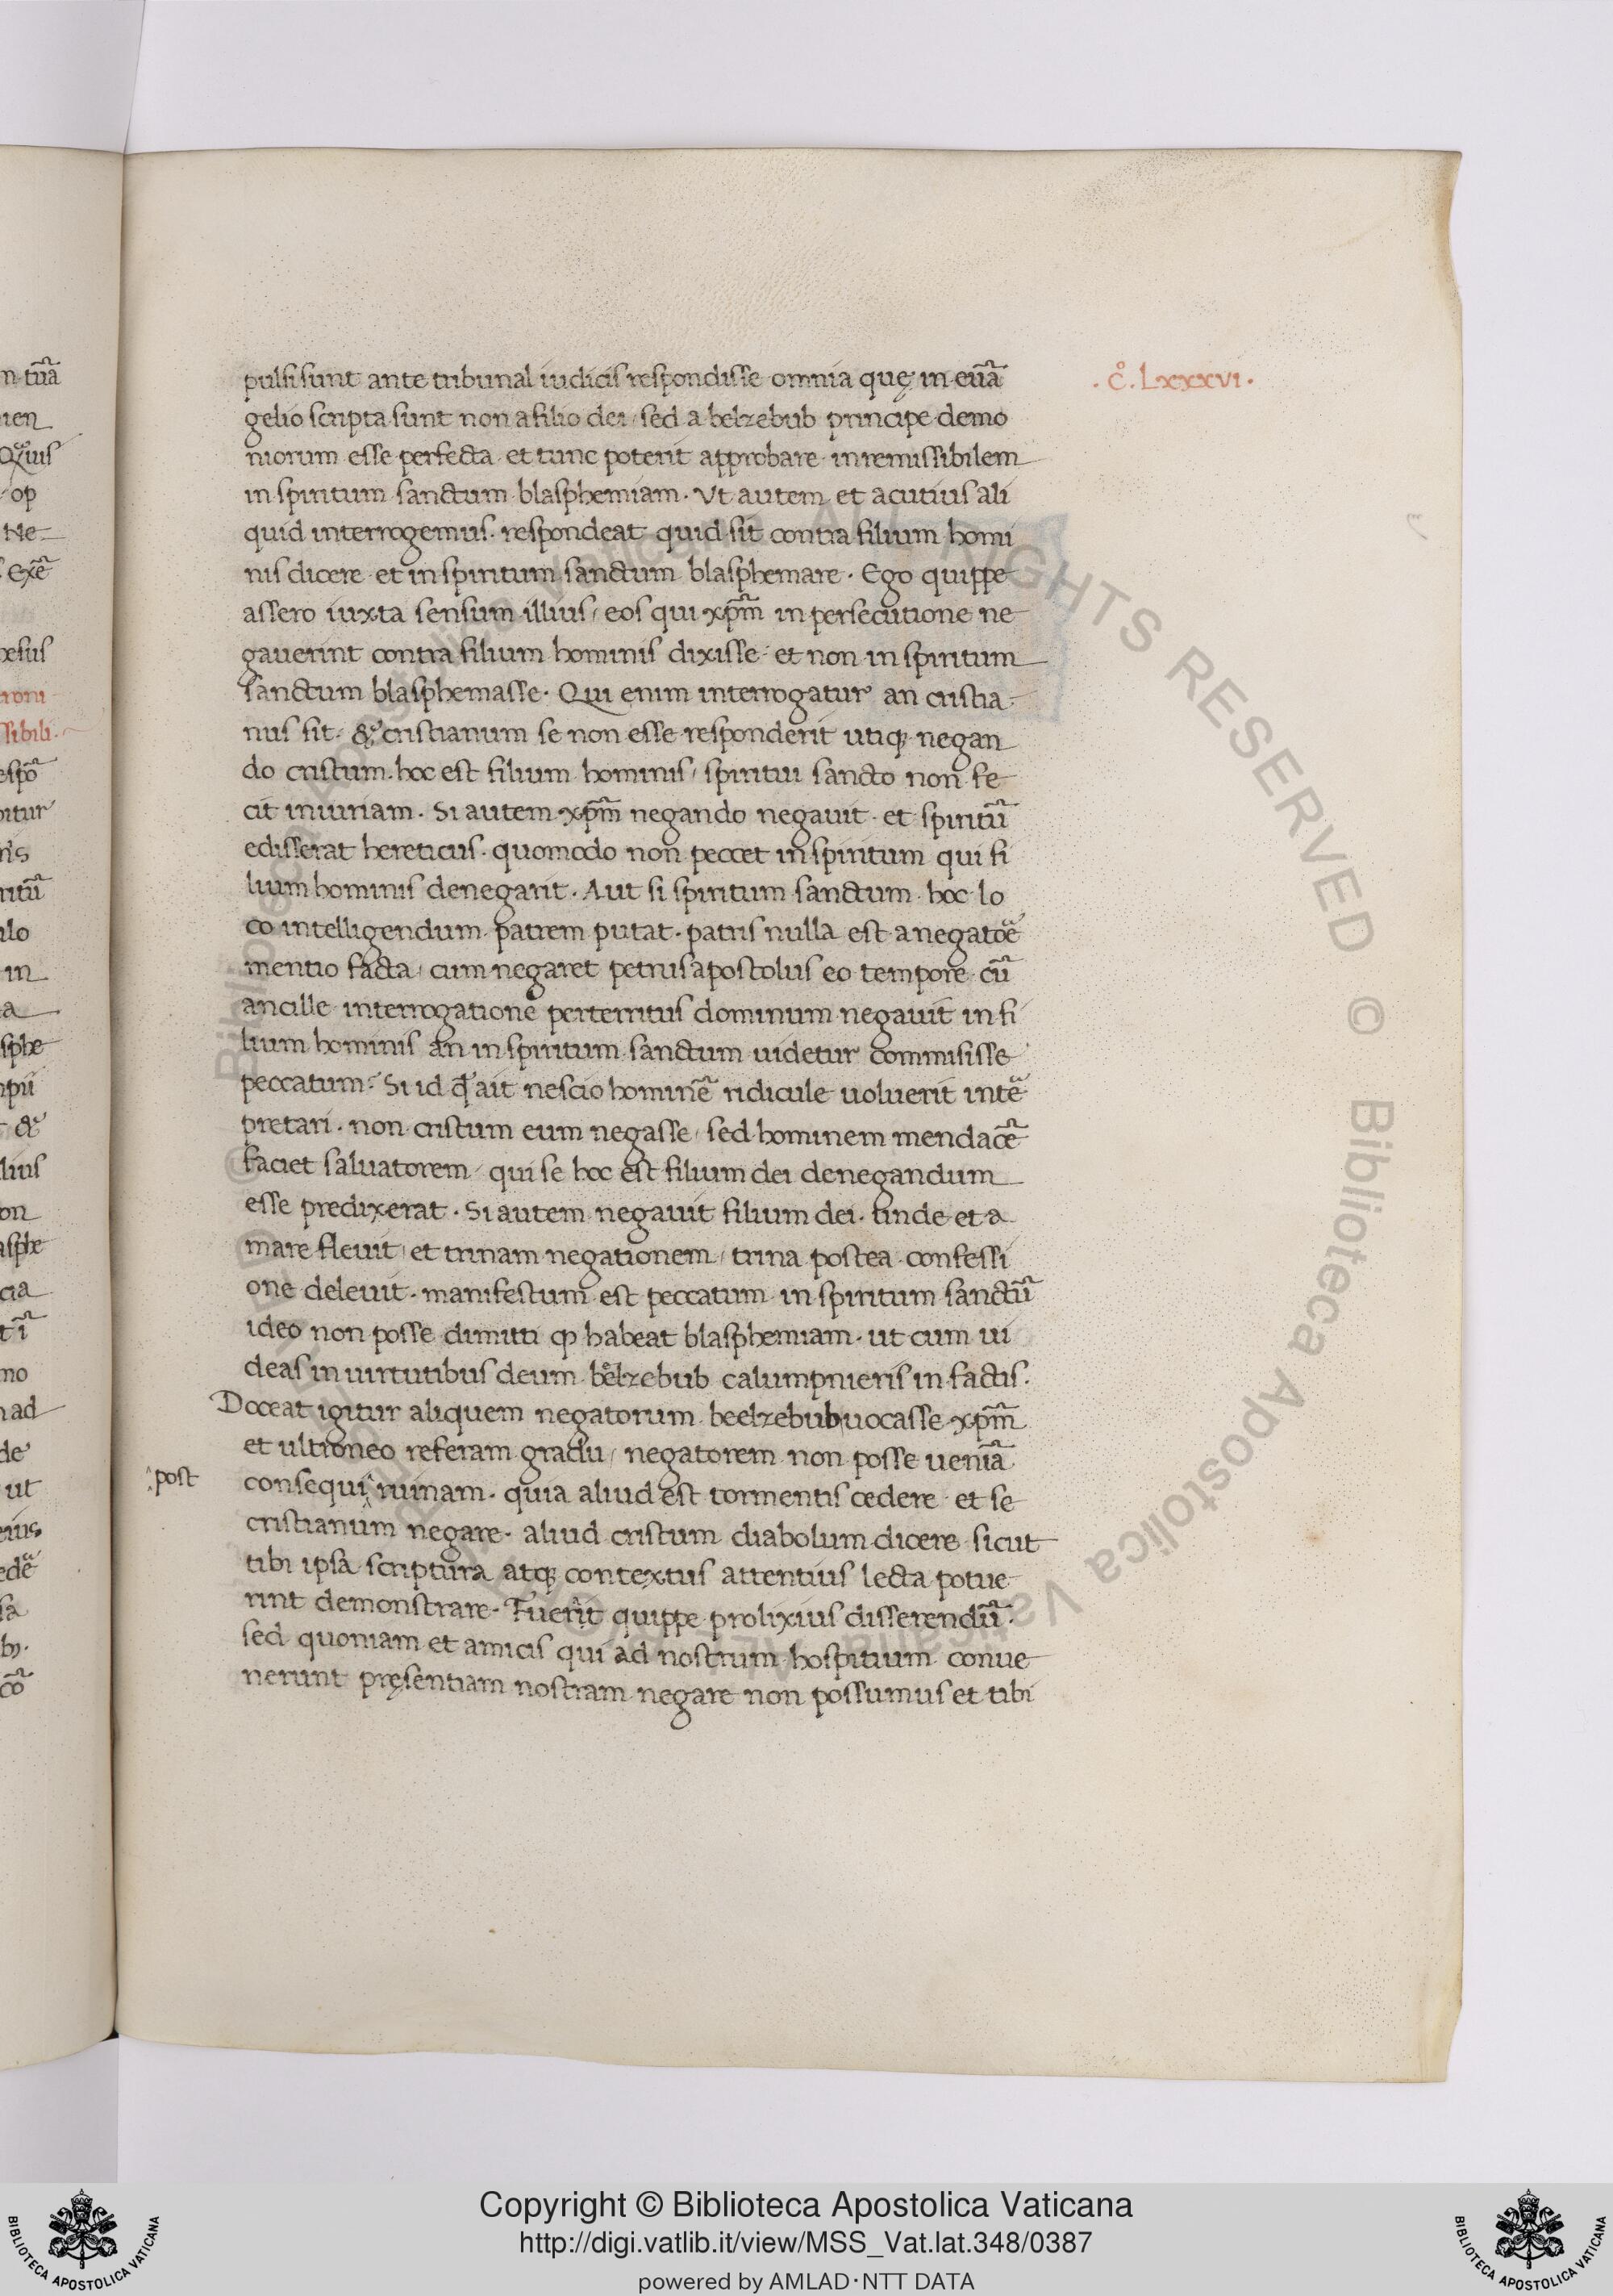 pulsi sunt ante tribunal iudicis respondisse omnia quę in eua͂
. c°. Lxxxvi .
gelio scripta sunt non a filio dei / sed a belzebub principe demo
niorum esse perfecta et tunc poterit approbare inremissibilem
in spiritum sanctum blasphemiam . Vt autem et acutius ali
quid interrogemus . respondeat quid sit contra filium homi
nis dicere et in spiritum sanctum blasphemare . Ego quippe
assero iuxta sensum illius / eos qui xp̃m in persecutione ne
gauerint contra filium hominis dixisse et non in spiritum
sanctum blasphemasse . Qui enim interrogatur an cristia
nus sit . & cristianum se non esse responderit utiqꝫ negan
do cristum . hoc est filium hominis / spiritui sancto non fe
cit iniuriam . Si autem xp̃m negando negauit et spiritũ
edisserat hereticus . quomodo non peccet in spiritum qui fi
lium hominis denegarit . Aut si spiritum sanctum hoc lo
co intelligendum patrem putat . patris nulla est a negatoẽ
mentio facta / cum negaret petrus apostolus eo tempore cũ
ancille interrogatione perterritus dominum negauit in fi
lium hominis an in spiritum sanctum uidetur commisisse
peccatum . Si id qđ ait nescio hominẽ ridicule uoluerit intẽ
pretari . non cristum eum negasse / sed hominem mendacẽ
faciet saluatorem / qui se hoc est filium dei denegandum
esse predixerat . Si autem negauit filium dei . unde et a
mare fleuit / et trinam negationem / trina postea confessi
one deleuit . manifestum est peccatum in spiritum sanctũ
ideo non posse dimitti ꝙ habeat blasphemiam . ut cum ui
deas in uirtutibus deum belzebub calumpnieris in factis .
Doceat igitur aliquem negatorum beelzebub uocasse xp̃m
et ultroneo referam gradu / negatorem non posse ueniã
post
consequi ruinam . quia aliud est tormentis cedere et se
cristianum negare . aliud cristum diabolum dicere sicut
tibi ipsa scriptura atqꝫ contextus attentius lecta potue
rint demonstrare . Fuerit quippe prolixius disserendũ .
sed quoniam et amicis qui ad nostrum hospitium conue
nerunt pręsentiam nostram negare non possumus et tibi
Copyright © Biblioteca Apostolica Vaticana
http://digi.vatlib.it/view/MSS_Vat.lat.348/0387
powered by AMLAD·NTT DATA